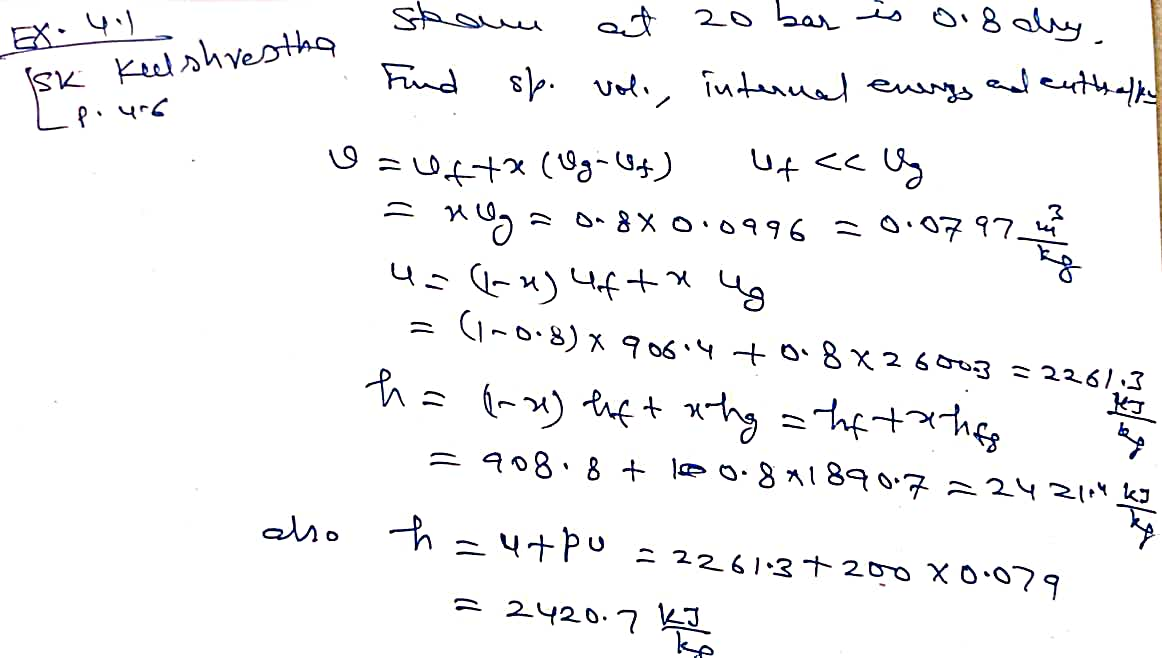 Ex. 4.1
[SK Kulshrestha
p. 4-6
Steam at 20 bar is 0.8 dry.
Find sp. vol., internal energy and enthalpy
v = vf + x (vg - vf) vf << vg
= x vg = 0.8 × 0.0996 = 0.0797 m³/kg
u = (1-x) uf + x ug
= (1-0.8) × 906.4 + 0.8 × 26003 = 2261.3 kJ/kg
h = (1-x) hf + x hg = hf + x hfg
= 908.8 + 0.8 × 1890.7 = 2421.4 kJ/kg
also h = u + pv = 2261.3 + 200 × 0.079
= 2420.7 kJ/kg